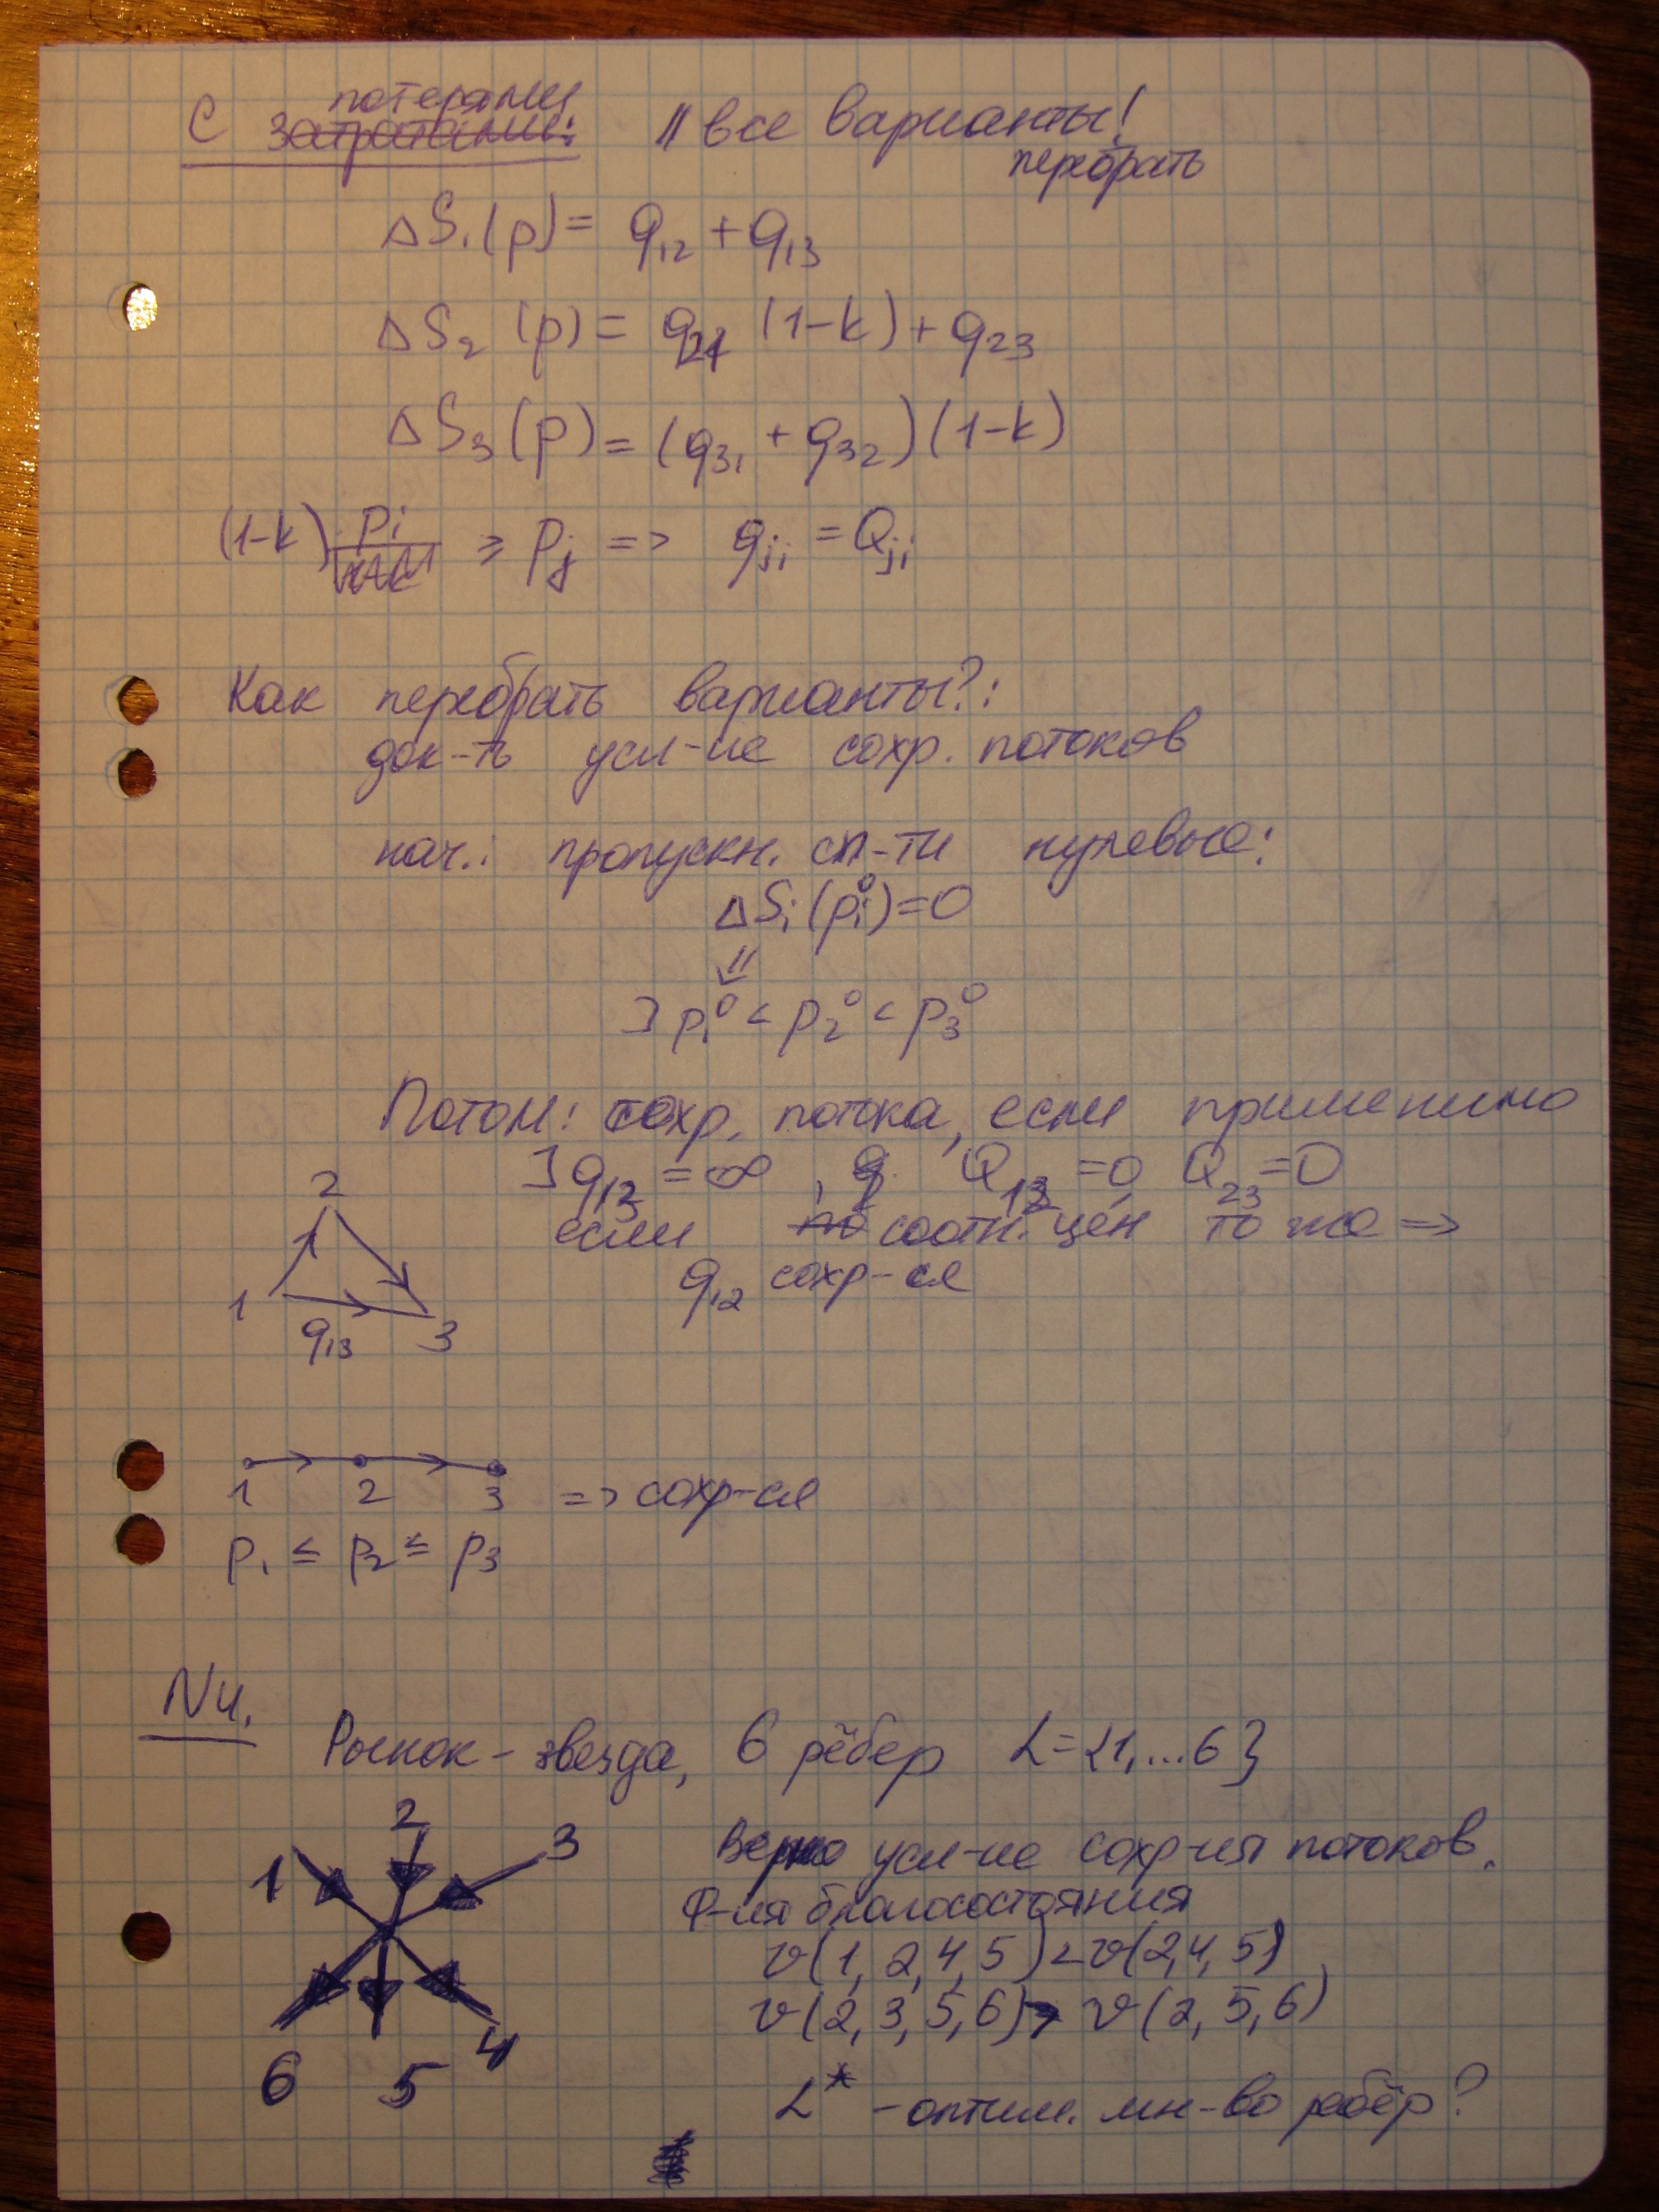 С потерями // все варианты!
перебрать
ΔS₁(p) = q₁₂ + q₁₃
ΔS₂(p) = q₂₁ (1-k) + q₂₃
ΔS₃(p) = (q₃₁ + q₃₂)(1-k)
(1-k) pᵢ ≥ pⱼ => qⱼᵢ = Qⱼᵢ
Как перебрать варианты?:
док-ть усл-ие сохр. потоков
нач.: пропускн. сп-ти нулевые:
ΔSᵢ(pᵢ⁰)=0
⇓
] p₁⁰ < p₂⁰ < p₃⁰
Потом: сохр. потока, если применимо
] q₁₂ = ∞, Q₁₃ = 0, Q₂₃ = 0
если соотн. цен то же =>
q₁₂ сохр-ся
2
1
3
q₁₃
1 2 3 => сохр-ся
p₁ ≤ p₂ ≤ p₃
N4.
Рынок - звезда, 6 рёбер L={1,...6}
1 2 3
6 5 4
Верно усл-ие сохр-ия потоков.
Ф-ия благосостояния
v(1, 2, 4, 5) < v(2, 4, 5)
v(2, 3, 5, 6) > v(2, 5, 6)
L* - оптим. мн-во рёбер?